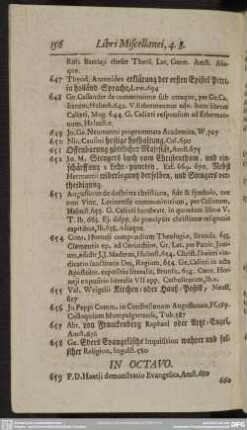 156 Libri Miscellanei, 4. 8.
Rob. Barclaji theses Theol. Lat, Germ. Amst. aliæque.
647 Theod. Antonides erklärung der ersten Epistel Petri,
in holländ. Sprache, Lew. 694
648 Ge. Cassander de communione sub utraque, per Ge. Calixtum,
Helmst. 642.
Calixti, Mog. 644. G. Calixti responsum ad
Helmst.
649 Jo. Ge. Neumanni programmata Academica, W. 707
650 Nic. Causini heilige hofhaltung, Col. 690
651 Offenbarung göttlicher Majestät, Amst. 675
652 Jo. M. Stengers buch vom Christenthum, und
schärffung
Herrmanni wiederlegung derselben, und Stengers vertheidigung.
653 Augustinus de doctrina christiana, fide & symbolo, nec
non Vinc. Lerinensis commonitorium, per Calixtum,
Helmst. 655. G. Calixti
T. ib. 663. Ej. disp. de præcipuis christianæ religionis
capitibus, ib. 658. aliæque.
654 Conr. Horneji compendium Theologiæ, Brunsv. 655.
Clementis ep. ad Corinthios, Gr. Lat. per Patric. Junium,
Helmst. 654. Christ. Dreieri
Ge. Calixti in acta
Apostolor. expositio literalis, Brunsv. 654. Conr. Horneji
expositio literalis VII epp. Catholicarum, ib. e.
655 Val. Weigelii Kirchen- oder Hauß-Postill, Neust.
617
656 Jo. Pappi Comm. in Confessionem Augustanam, Ff. 589.
Colloquium Mompelgartense, Tub. 587
657 Abr. von Franckenberg Raphael oder Artzt-Engel,
Amst. 676
658 Ge. Ebers Evangelische Inquisition wahrer und falscher
Religion, Ingolst. 580
IN OCTAVO.
659 P. D. Huetii demonstratio Evangelica, Amst. 680
660